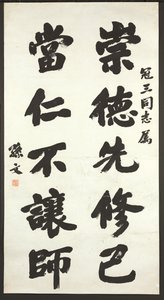 冠三同志属
崇德先修己
當仁不讓師
孫文